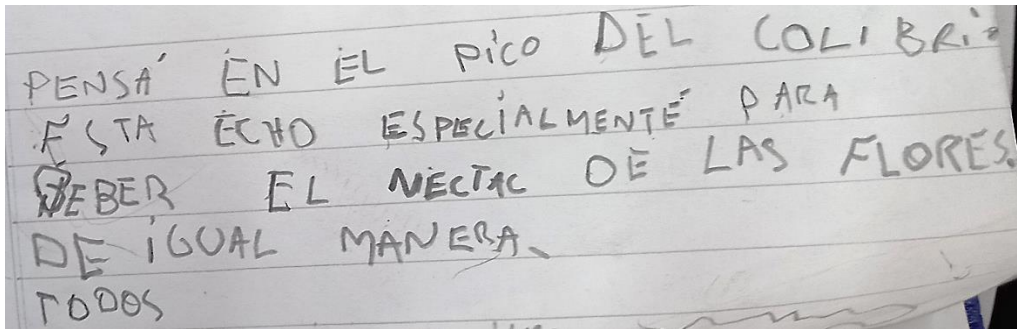 PENSÁ EN EL PICO DEL COLIBRÍ:
ESTA ECHO ESPECIALMENTE PARA
BEBER EL NECTAC DE LAS FLORES.
DE IGUAL MANERA.
TODOS